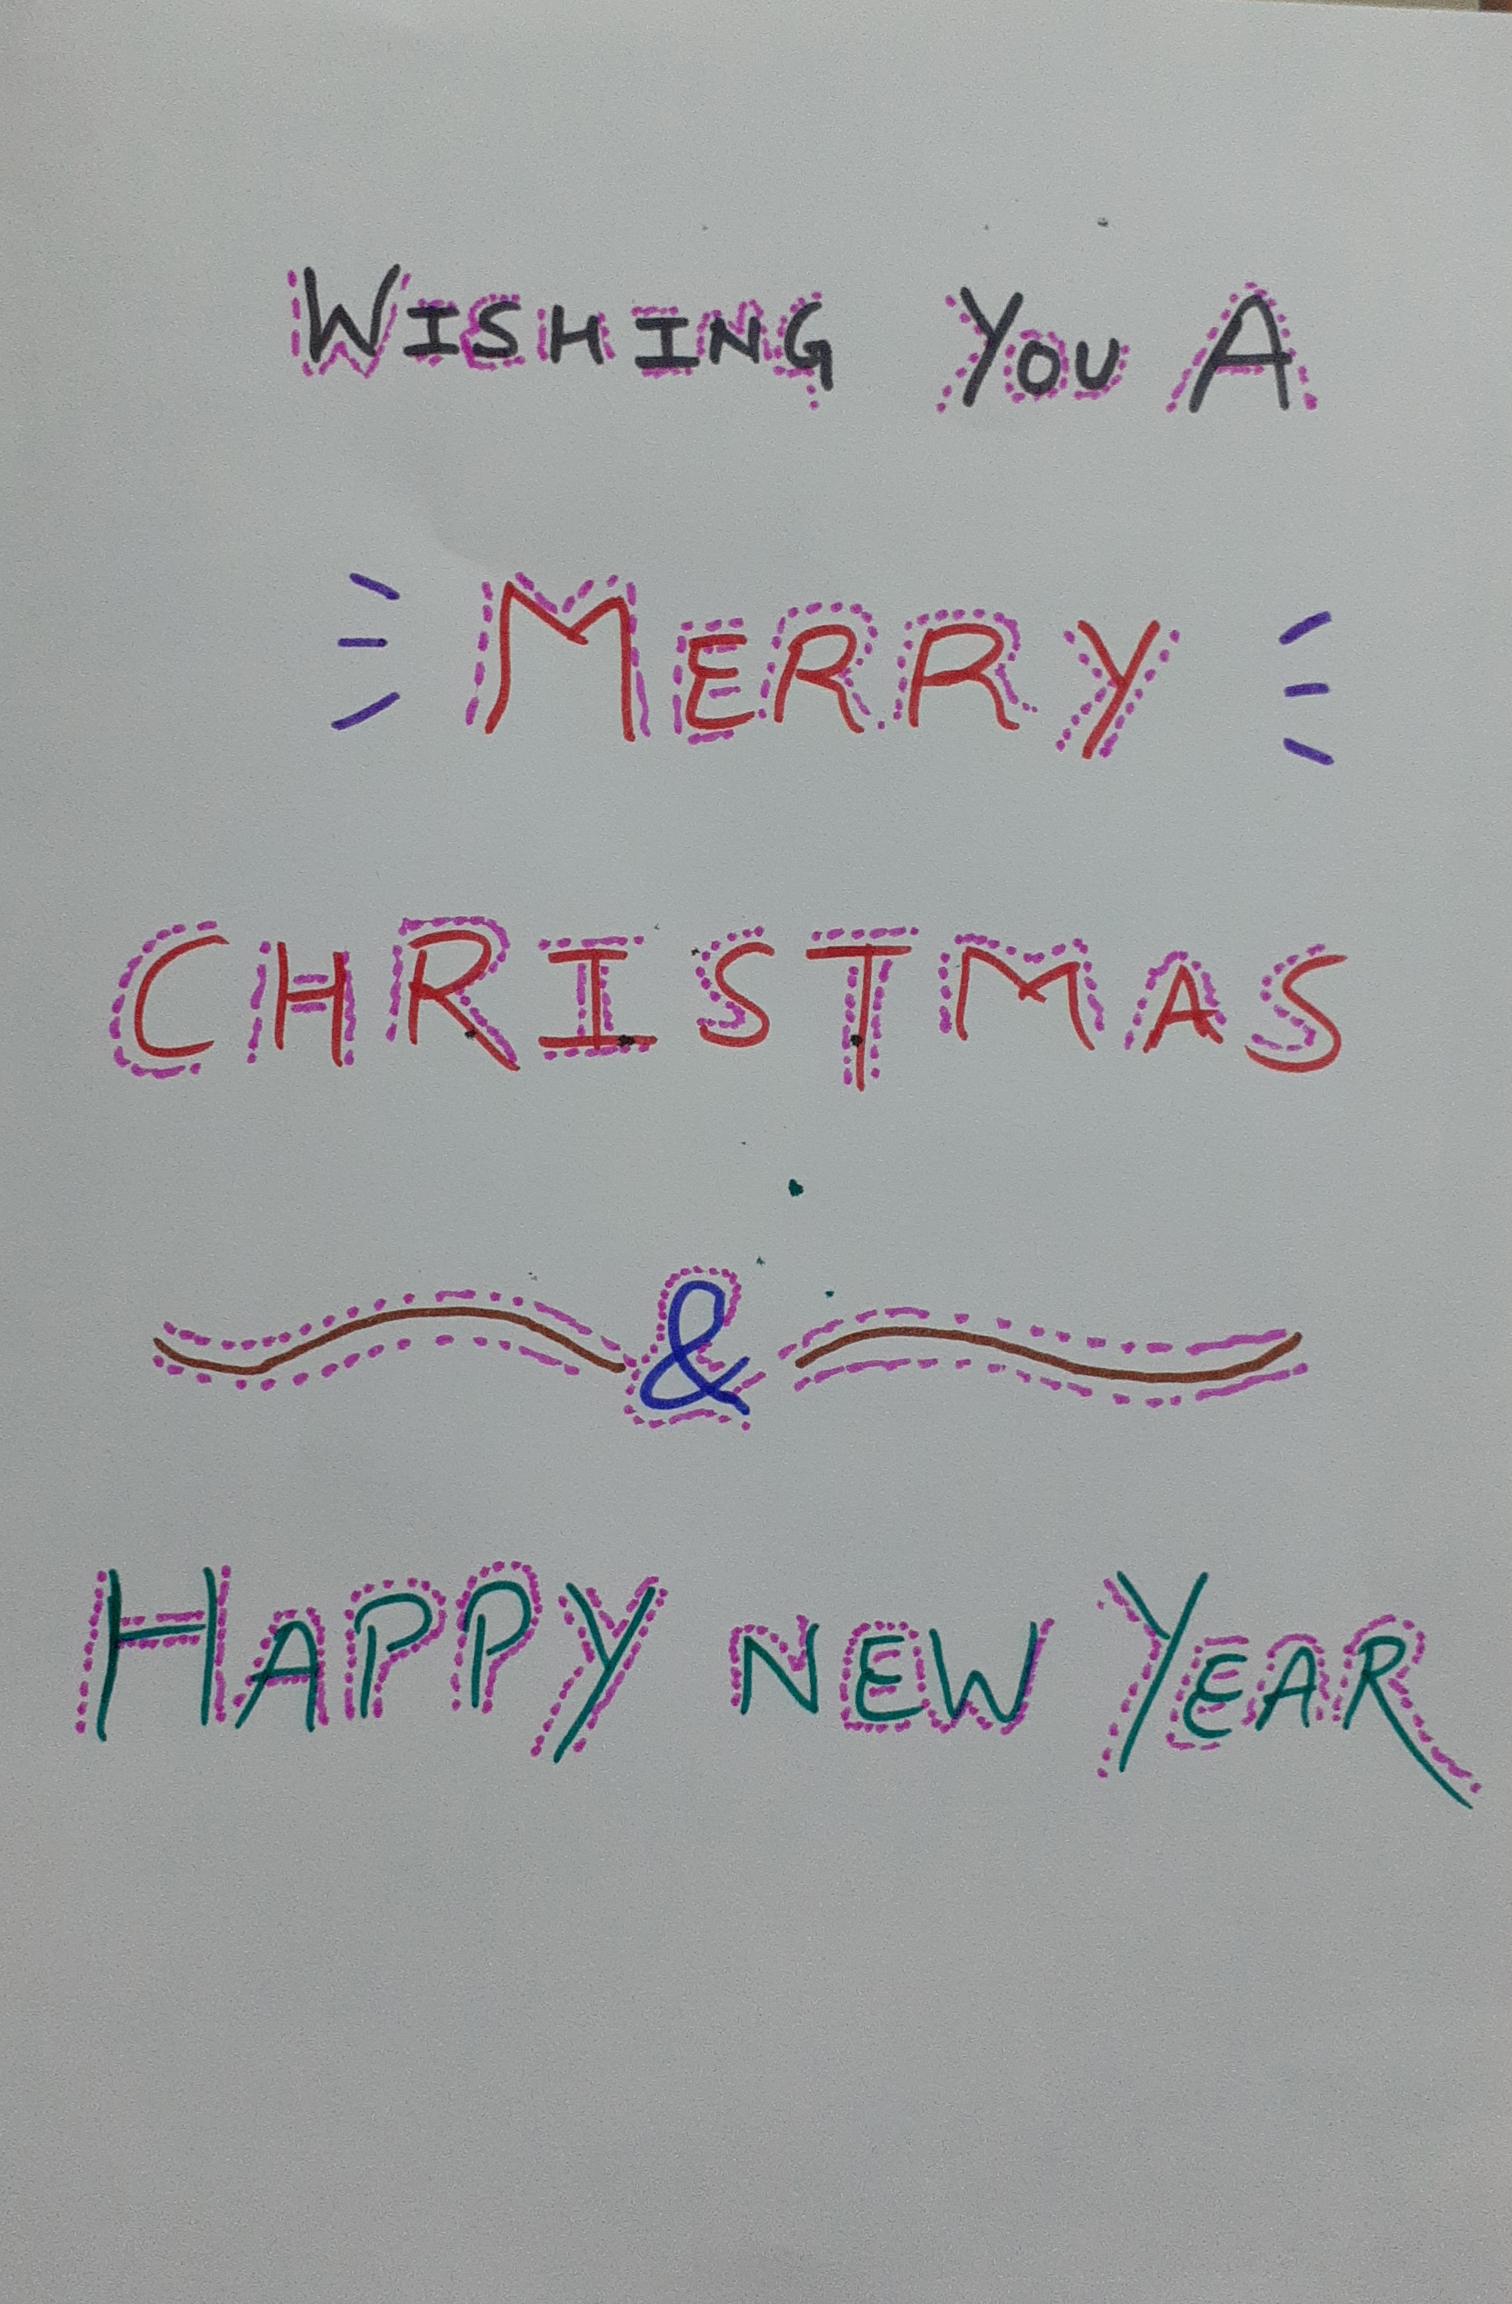 WISHING YOU A
MERRY
CHRISTMAS
&
HAPPY NEW YEAR